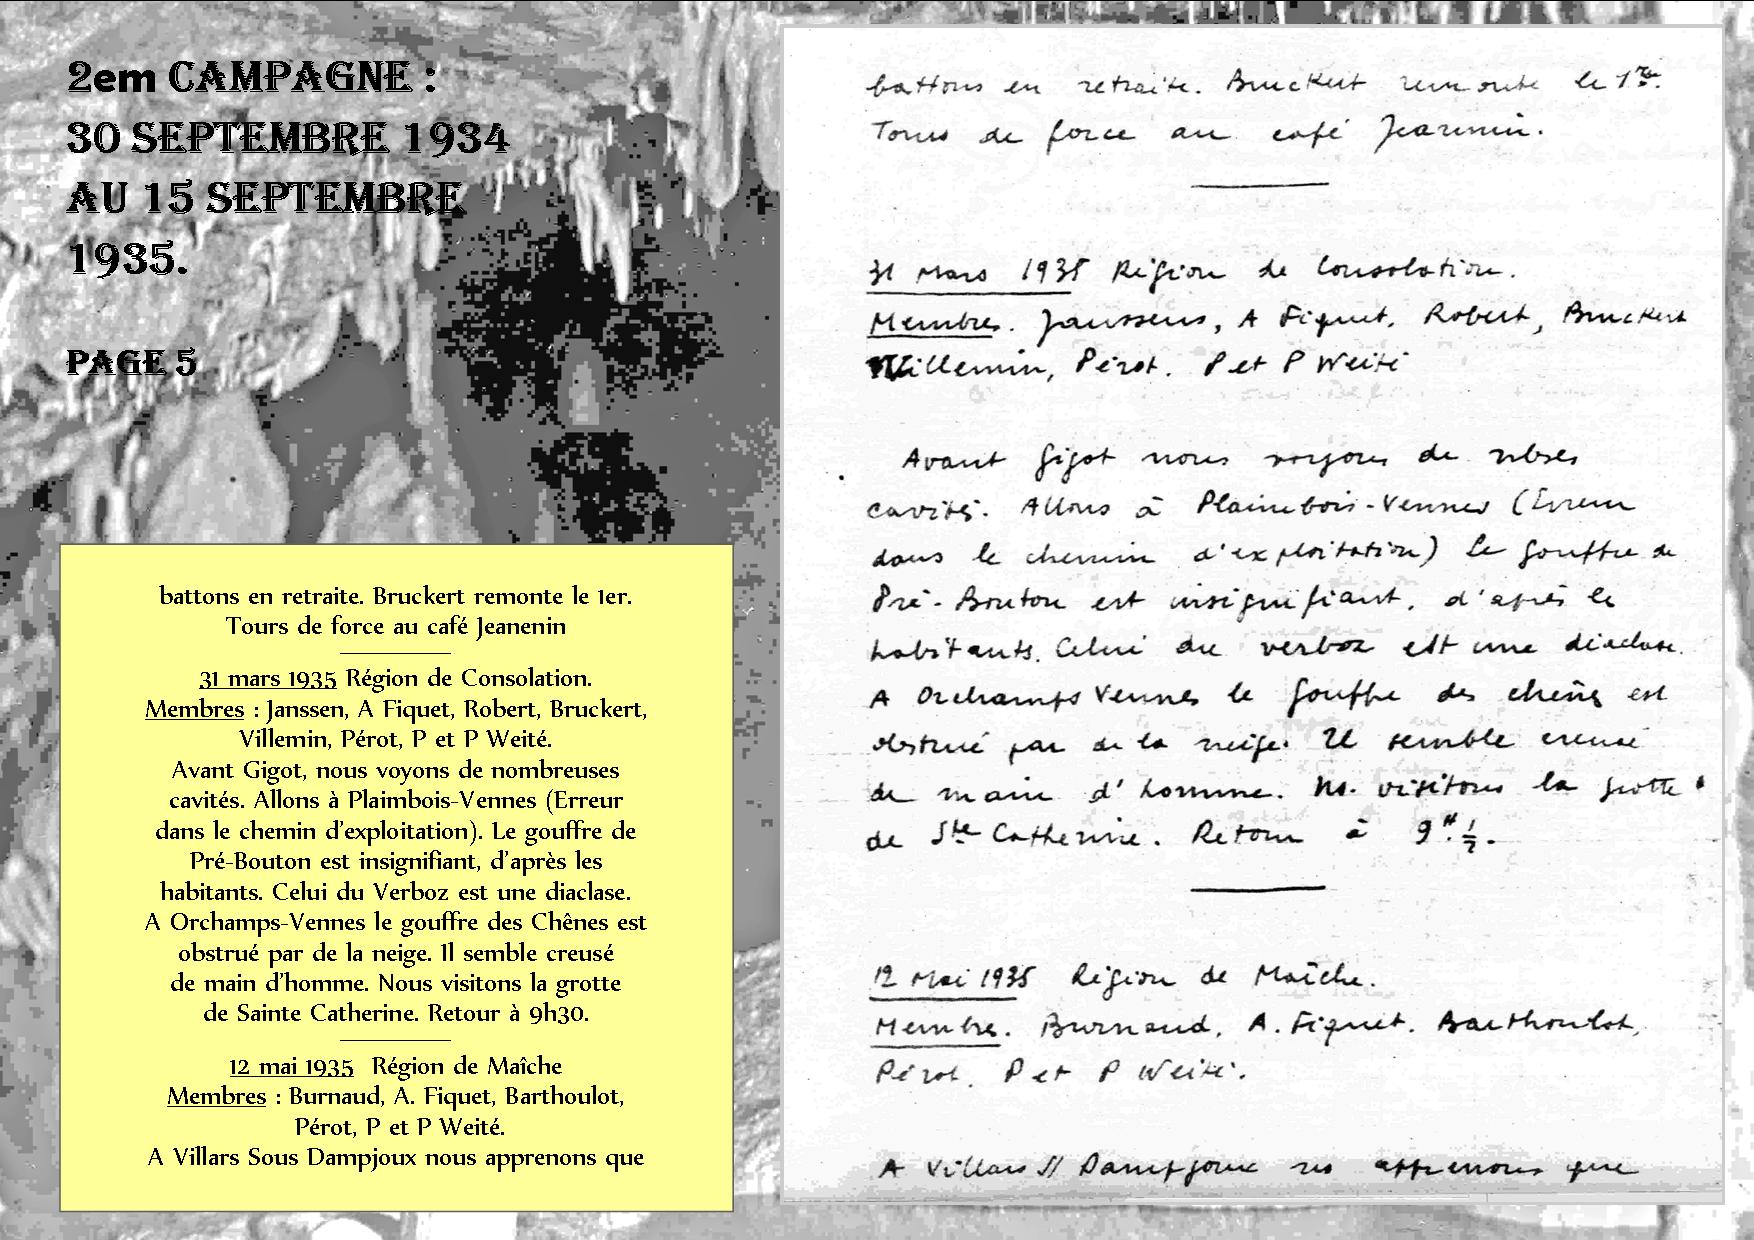 2em CAMPAGNE :
30 SEPTEMBRE 1934
AU 15 SEPTEMBRE
1935.
PAGE 5
battons en retraite. Bruckert remonte le 1er.
Tours de force au café Jeanenin
31 mars 1935 Région de Consolation.
Membres : Janssen, A Fiquet, Robert, Bruckert,
Villemin, Pérot, P et P Weité.
Avant Gigot, nous voyons de nombreuses
cavités. Allons à Plaimbois-Vennes (Erreur
dans le chemin d'exploitation). Le gouffre de
Pré-Bouton est insignifiant, d'après les
habitants. Celui du Verboz est une diaclase.
A Orchamps-Vennes le gouffre des Chênes est
obstrué par de la neige. Il semble creusé
de main d'homme. Nous visitons la grotte
de Sainte Catherine. Retour à 9h30.
12 mai 1935 Région de Maîche
Membres : Burnaud, A. Fiquet, Barthoulot,
Pérot, P et P Weité.
A Villars Sous Dampjoux nous apprenons que
battons en retraite. Bruckert remonte le 1er.
Tours de force au café Jeannin.
31 Mars 1935 Région de Consolation.
Membres. Janssens, A Fiquet, Robert, Bruckert
Willemin, Pérot. P et P Weité
Avant Gigot nous voyons de nbses
cavités. Allons à Plaimbois-Vennes (Erreur
dans le chemin d'exploitation) Le gouffre de
Pré-Bouton est insignifiant, d'après les
habitants. Celui du verboz est une diaclase.
A Orchamps Vennes le gouffre des chênes est
obstrué par de la neige. Il semble creusé
de main d'homme. Ns. visitons la grotte
de Ste Catherine. Retour à 9H. 1/2.
12 Mai 1935 Région de Maîche.
Membre. Burnaud, A. Fiquet. Barthoulot,
Pérot. P et P Weité.
A Villars S/ Dampjoux ns apprenons que